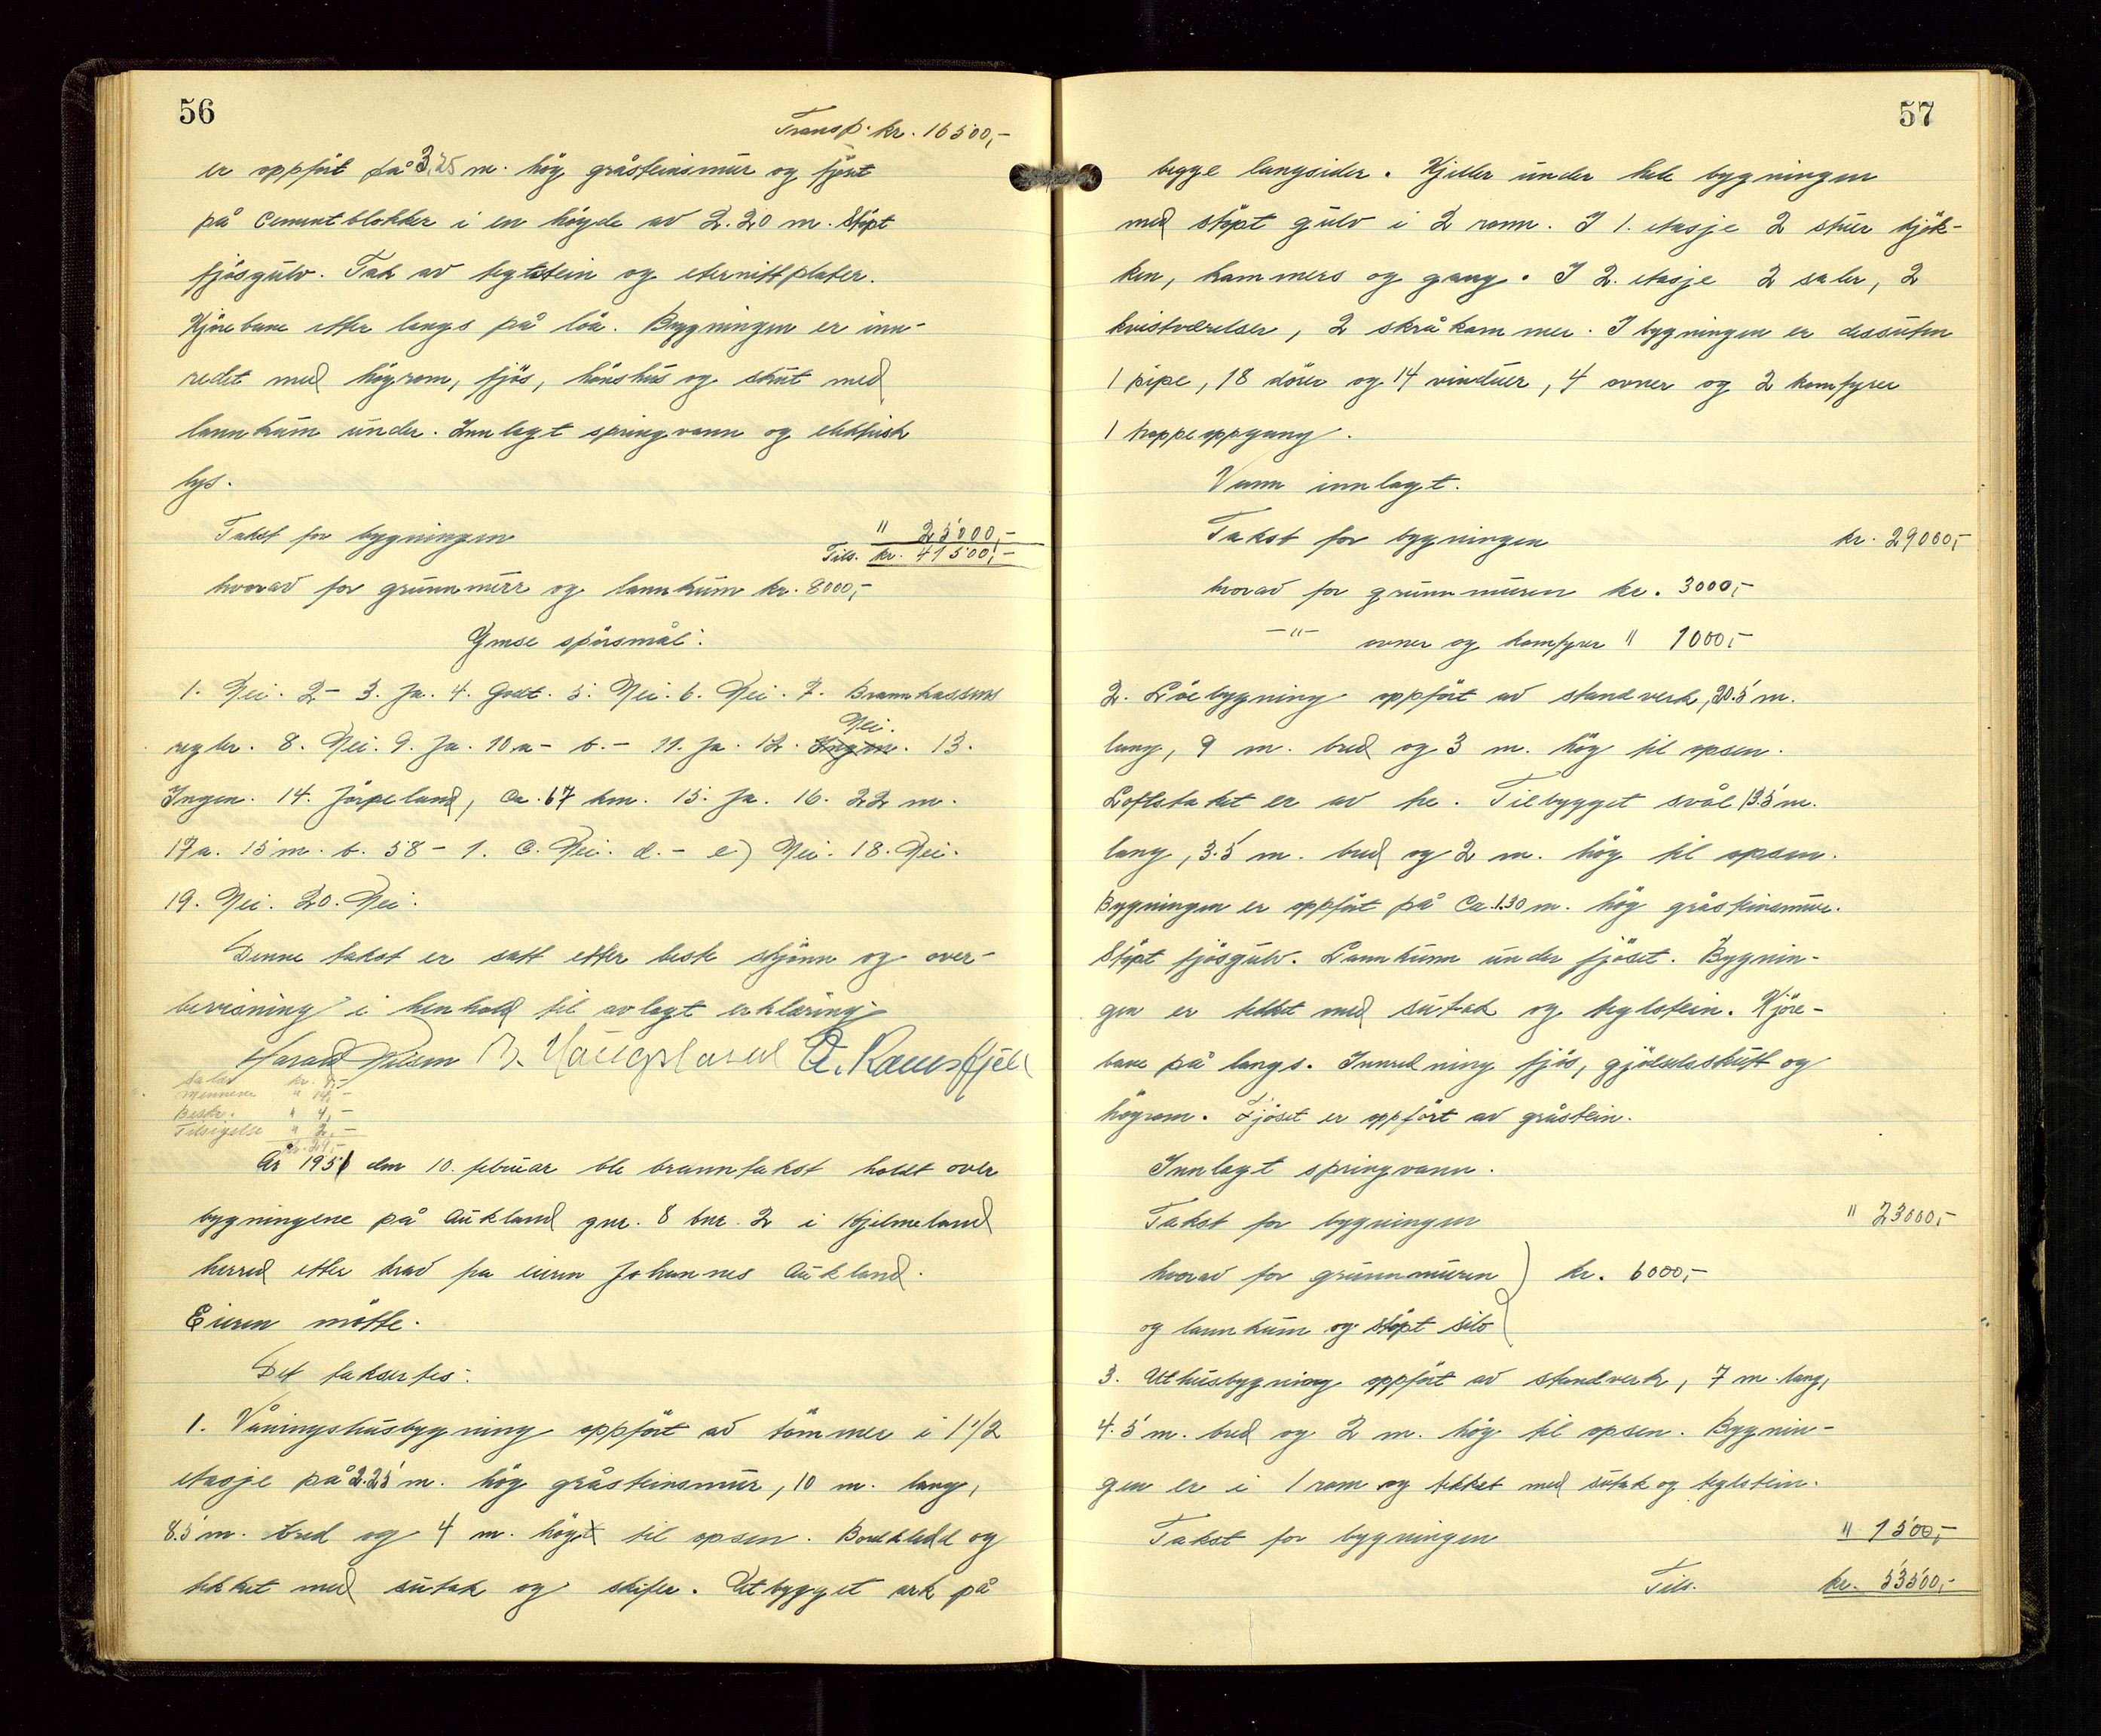 56
Transp. kr. 16500,-
er oppfört på 3,25 m. hög gråsteinsmur og fjöst
på cementblokker i en höyde av 2.20 m. Stöpt
fjösgulv. Tak av teglstein og eternittplater.
Kjörebane etter langs på löa. Bygningen er inn-
redet med högrom, fjös, hönshus og skut med
lannkum under. Innlagt springvann og elektrisk
lys.
Takst for bygningen " 25000,-
Tils. kr. 41500,-
hvorav for grunnmur og lannkum kr. 8000,-
Ymse spörsmål:
1. Nei. 2 - 3. Ja. 4. Godt. 5. Nei. 6. Nei. 7. Brannkassens
Nei.
regler. 8. Nei. 9. Ja. 10a - b. - 11. Ja. 12. Ingen. 13.
Ingen. 14. Jörpeland, ca. 67 km. 15. Ja. 16. 22 m.
17a. 15 m. b. 58 - 1. c. Nei. d. - e) Nei. 18. Nei.
19. Nei. 20. Nei.
Denne takst er satt etter beste skjönn og over-
bevisning i henhold til avlagt erklæring.
Harald
Mennene " 14,-
Beskr. " 4,-
Tilsigelse " 2,-
År 1951 den 10. februar ble branntakst holdt over
bygningene på Aukland gnr. 8 bnr. 2 i Hjelmeland
herred etter krav fra eieren Johannes Aukland.
Eieren mötte.
Det taksertes:
1. Våningshusbygning oppfört av tömmer i 1 1/2
etasje på 2.25 m. hög gråsteinsmur, 10 m. lang,
8.5 m. bred og 4 m. högt til opsen. Bordkledd og
tekket med sutak og skifer. Utbygget ark på
57
begge langsider. Kjeller under hele bygningen
med stöpt gulv i 2 rom. I 1. etasje 2 stuer kjök-
ken, kammers og gang. I 2. etasje 2 saler, 2
kvistværelser, 2 skråkammer. I bygningen er dessuten
1 pipe, 18 dörer og 14 vinduer, 4 ovner og 2 komfyrer
1 trappeoppgang.
Vann innlagt.
Takst for bygningen kr. 29000,-
hvorav for grunnmuren kr. 3000,-
-"- ovner og komfyrer " 1000,-
2. Löebygning oppfört av standverk, 20.5 m.
lang, 9 m. bred og 3 m. hög til opsen.
Loftstaket er av tre. Tilbygget svål 13.5 m.
lang, 3.5 m. bred og 2 m. hög til opsen.
Bygningen er oppfört på ca. 1.30 m. hög gråsteinsmur.
Stöpt fjösgulv. Lannkum under fjöset. Bygnin-
gen er tekket med sutak og teglstein. Kjöre-
bane på langs. Innredning fjös, gjödselskutt og
högrom. Fjöset er oppfört av gråstein.
Innlagt springvann.
Takst for bygningen " 23000,-
hvorav for grunnmuren ) kr. 6000,-
og lannkum og stöpt silo
3. Uthusbygning oppfört av standverk, 7 m. lang,
4.5 m. bred og 2 m. hög til opsen. Bygnin-
gen er i 1 rom og tekket med sutak og teglstein.
Takst for bygningen " 1500,-
Tils. kr. 53500,-